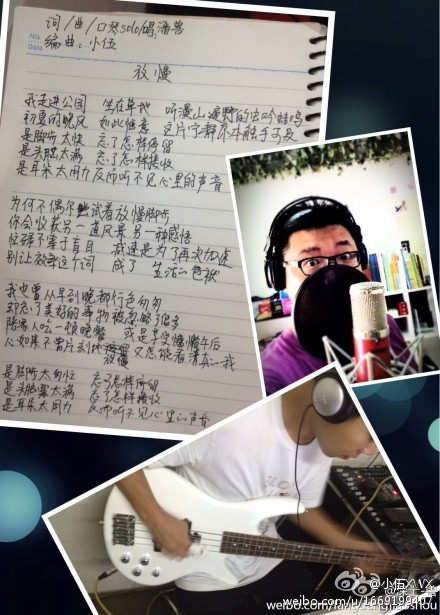 词/曲/口琴solo/唱:潘兽
编曲:小伍
No.
Date
放慢
我走进公园 坐在草地 听漫山遍野的虫吟蛙鸣
初夏的晚风 如此惬意 这片宁静原来触手可及
是脚听太快 忘了怎样停留
是头脑太满 忘了怎样接收
是耳朵太用力 反而听不见心里的声音
为何不偶尔尝试着放慢脚步
你会收获另一道风景另一种感悟
忙碌不等于盲目 减速是为了再次加速
别让放弃这个词 成了 生活的
我也曾从早到晚都行色匆匆
却忘了美好的事物被忽略了很多
陪家人吃一顿晚餐 或是享受慵懒午后
人如果不曾片刻地放慢 又怎能看清本一我
是脚听太匆忙 忘了怎样停留
是头脑塞太满 忘了怎样接收
是耳朵太用力 反而听不见心里的声音
@小伍XVX
weibo.com/u/1669199407